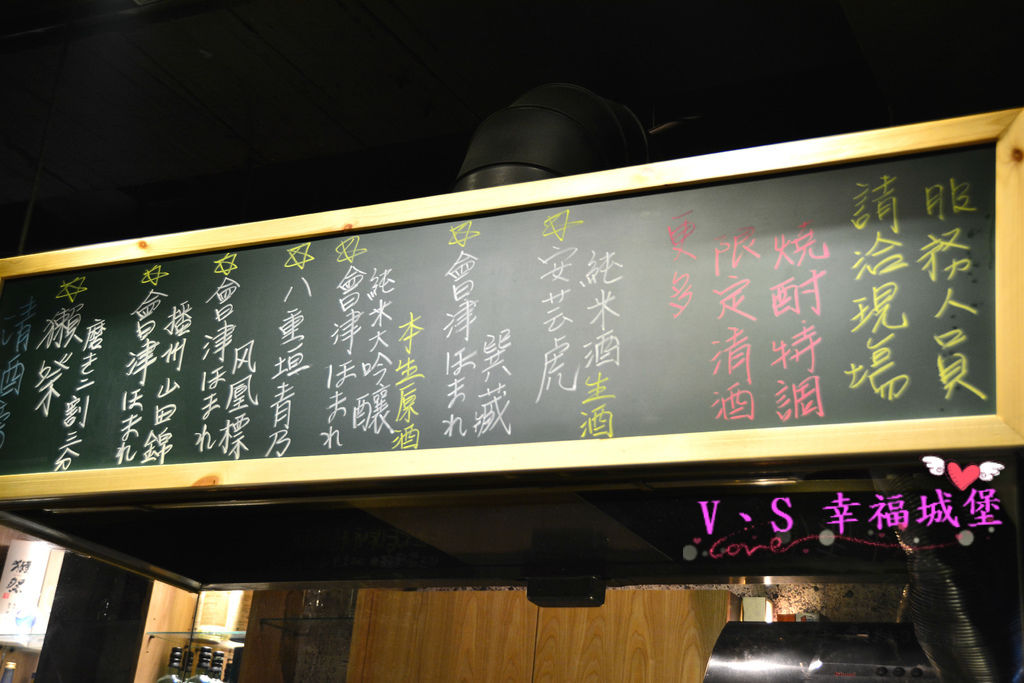 服務人員
請洽現場
燒酎特調
限定清酒
更多
純米酒生酒
安芸虎
巽藏
會津ほまれ
本生原酒
純米大吟釀
會津ほまれ
八重垣青乃
风凰標
會津ほまれ
播州山田錦
會津ほまれ
磨き二割三分
獺祭
清酒
V、S 幸福城堡
Love
獺祭